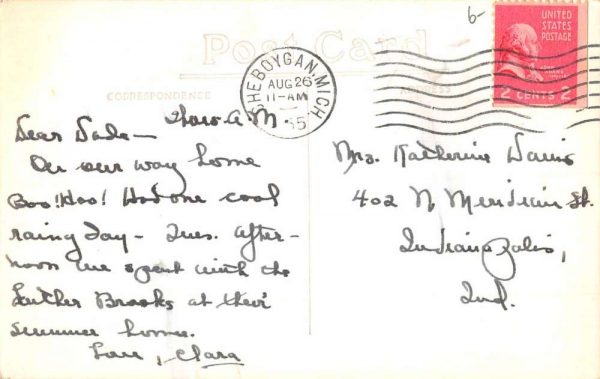 6-
UNITED
STATES
POSTAGE
JOHN
ADAMS
2 CENTS 2
Post Card
SHEBOYGAN, MICH.
AUG 26
11-AM
55
CORRESPONDENCE
ADDRESS
Thurs. A.M.
Dear Dada—
On our way home
Boo! Hoo! Had one cool
rainy day – Tues. after-
noon we spent with the
Luther Brooks at their
summer home.
Love, Clara
Mrs. Katherine Davis
402 N. Meridian St.
Indianapolis,
Ind.